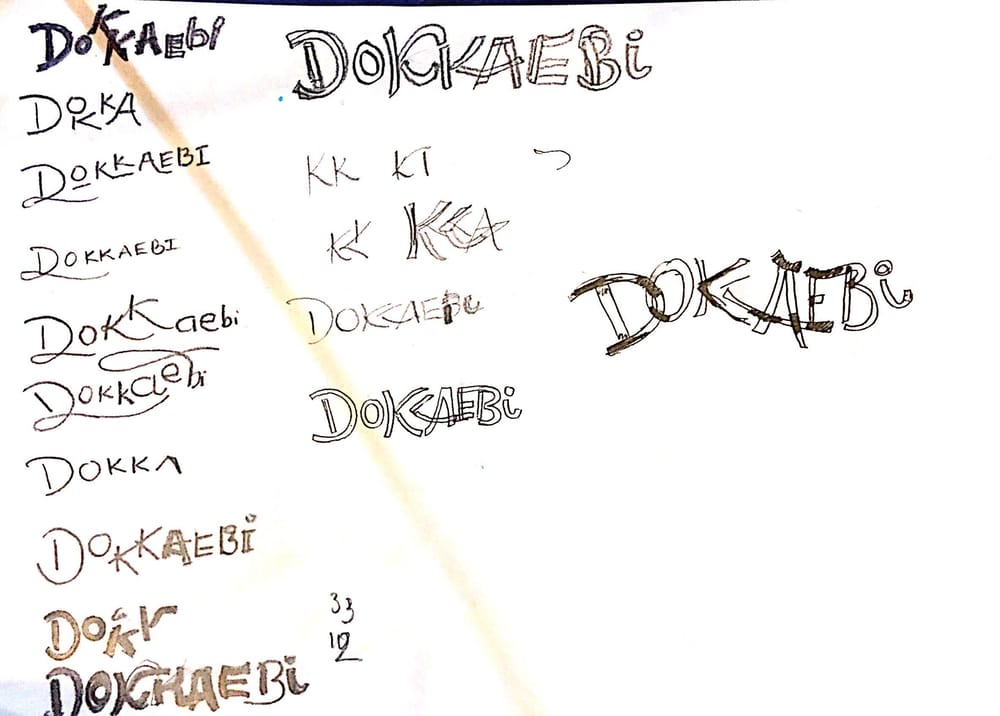 DOKKAEBi
DOKKA
DOKKAEBI
DOKKAEBI
DOKKaebi
Dokkaebi
DOKKA
DOKKAEBi
DOKK
DOKKAEBi
DOKKAEBi
KK KT
KK KKA
DOKKAEBi
DOKKAEBi
33
12
DOKKAEBi